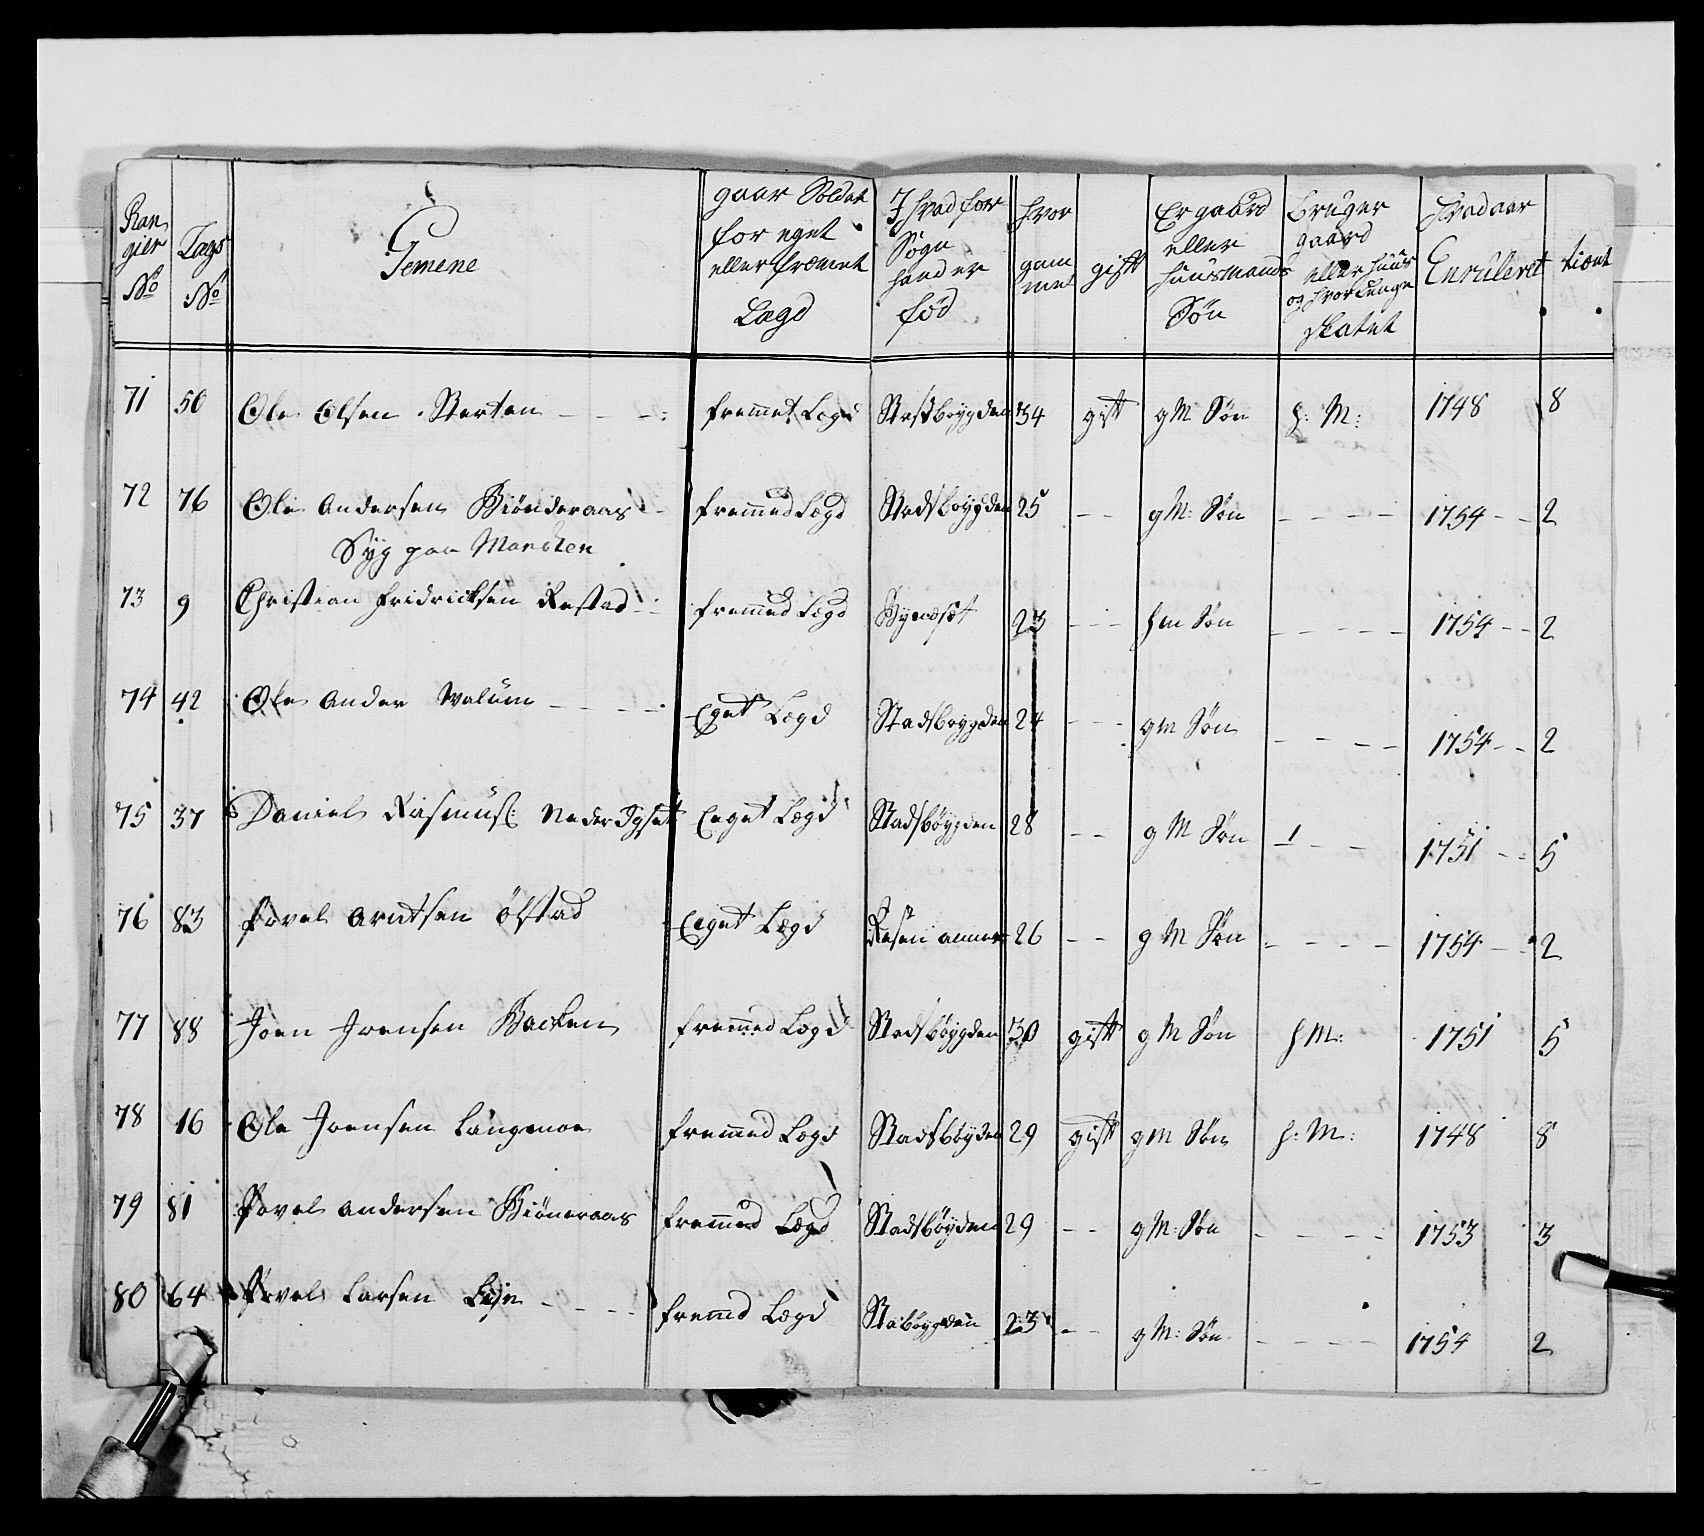 Ran
gier
No
Lægs
No
Gemene
gaar Soldat
for eget
eller fræmet
Lægd
I hvad for
Sogn
hand er
fød
hvor
gam
mel
gift
Er gaard
eller
huusmands
Søn
Bruger
gaard
eller huus
og hvor lenge
skatet
Hvad aar
Enruleret
tient
71 50 Ole Olsen Sterten fremmet Lægd Stadsboygden 34 gift gM Søn h: M: 1748 8
72 76 Ole Andersen Biönderaas fremmed Lægd Stadsboygden 25 gM: Søn 1754 2
Syg paa Marschen
73 9 Christian Fridricksen Restad fremmed Lægd Bynæset 23 hm Søn 1754 2
74 42 Ole Ander Walum Eget Lægd Stadsboygden 24 gm Søn 1754 2
75 37 Daniel Rasmus: Neder Igset Eeget Lægd Stadsböygden 28 g M Søn 1 1751 5
76 83 Povel Arntsen Ölstad Eeget Lægd Risen annex 26 g M Søn 1754 2
77 88 Joen Joensen Backen fremmed Lægd Stadsböygden 30 gift g M Søn h M: 1751 5
78 16 Ole Joensen Langmoe fremmed Lægd Stadsböyden 29 gift gm Søn h: M: 1748 8
79 81 Povel Andersen Biöneraas fremmed Lægd Stadsböyden 29 gM: Søn 1753 3
80 64 Povel Larsen Lein fremd Lægd Staböygden 23 gM: Søn 1754 2